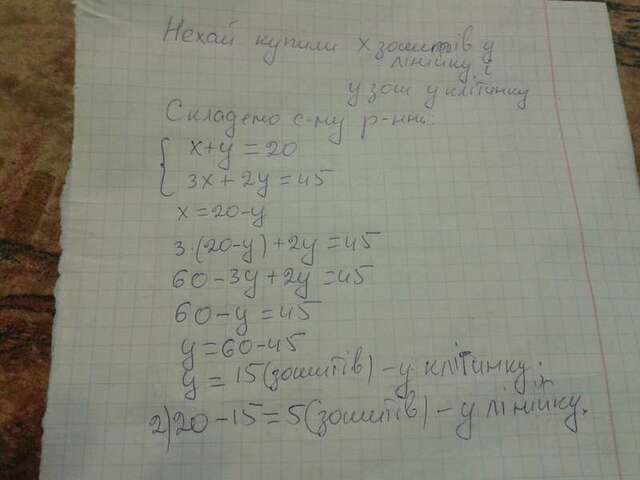 Нехай купили x зошитів у
лінійку і
y зош у клітинку
Складемо с-му р-ннь:
{ x+y=20
3x+2y=45
x=20-y
3·(20-y)+2y=45
60-3y+2y=45
60-y=45
y=60-45
y=15(зошитів)-у клітинку;
2)20-15=5(зошитів)-у лінійку.